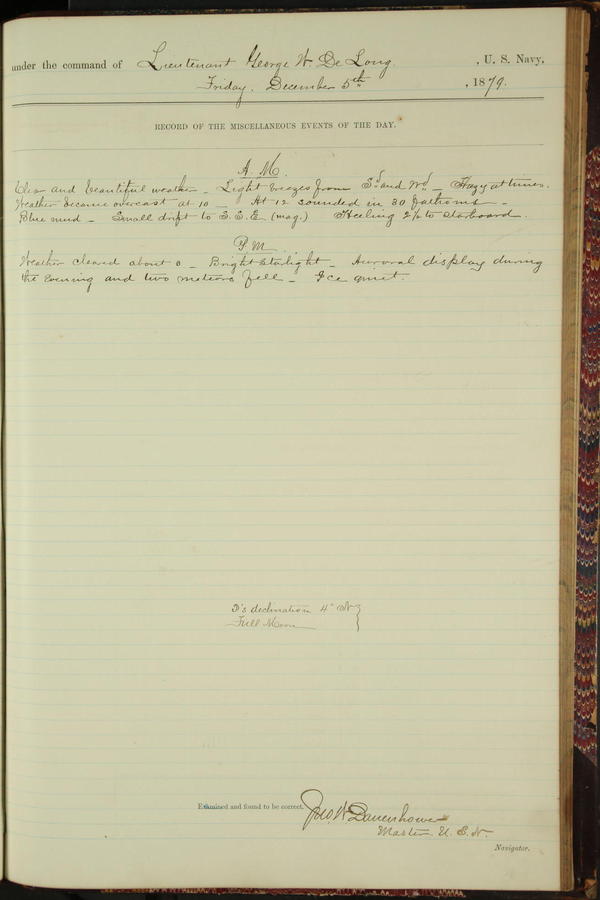 under the command of Lieutenant George W. De Long, U. S. Navy,
Friday, December 5th, 1879.
RECORD OF THE MISCELLANEOUS EVENTS OF THE DAY.
A. M.
Clear and beautiful weather – Light breezes from Sd and Wd – Hazy at times.
Weather became overcast at 10 – At 12 sounded in 30 fathoms –
Blue mud – Small drift to S.S.E. (mag.) Heeling 2½ to starboard.
P. M.
Weather cleared about – Bright Starlight – Auroral display during
the evening and two meteors fell – Ice quiet.
's declination 4° N }
Full Moon
Examined and found to be correct. Jno. W. Danenhower
Master U. S. N.
Navigator.